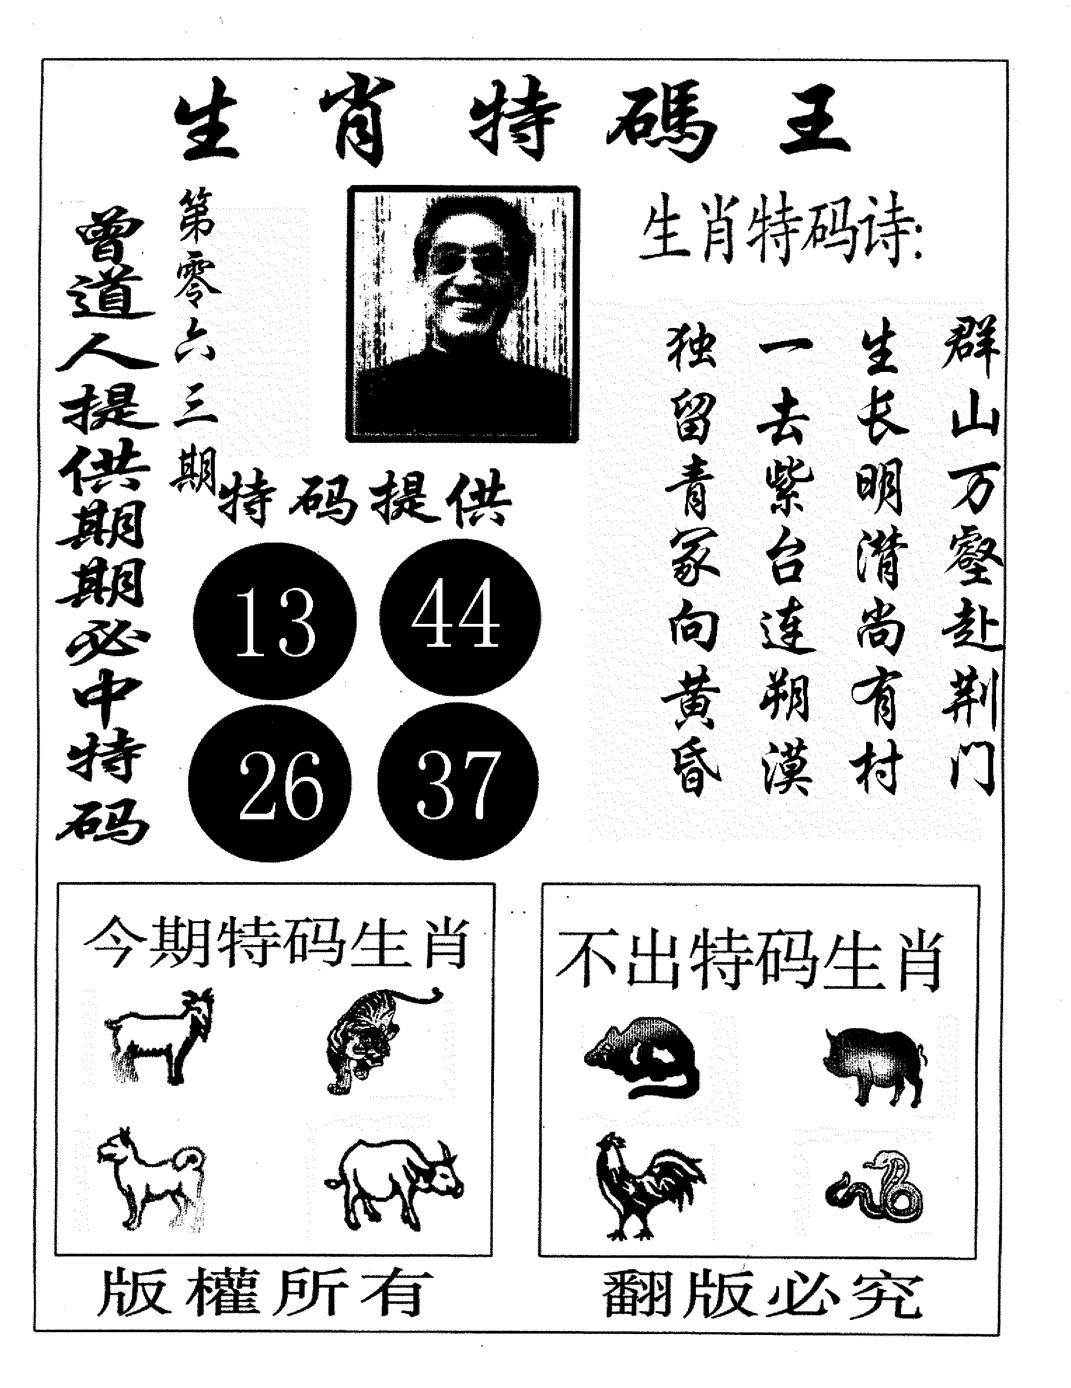 生肖特碼王
曾道人提供期期必中特码
第零六三期
生肖特码诗:
群山万壑赴荆门
生长明潜尚有村
一去紫台连朔漠
独留青冢向黄昏
特码提供
13 44
26 37
今期特码生肖
不出特码生肖
版權所有
翻版必究